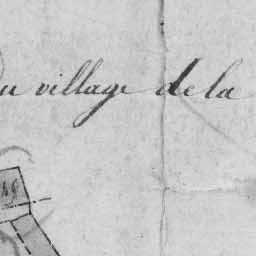 u village de la